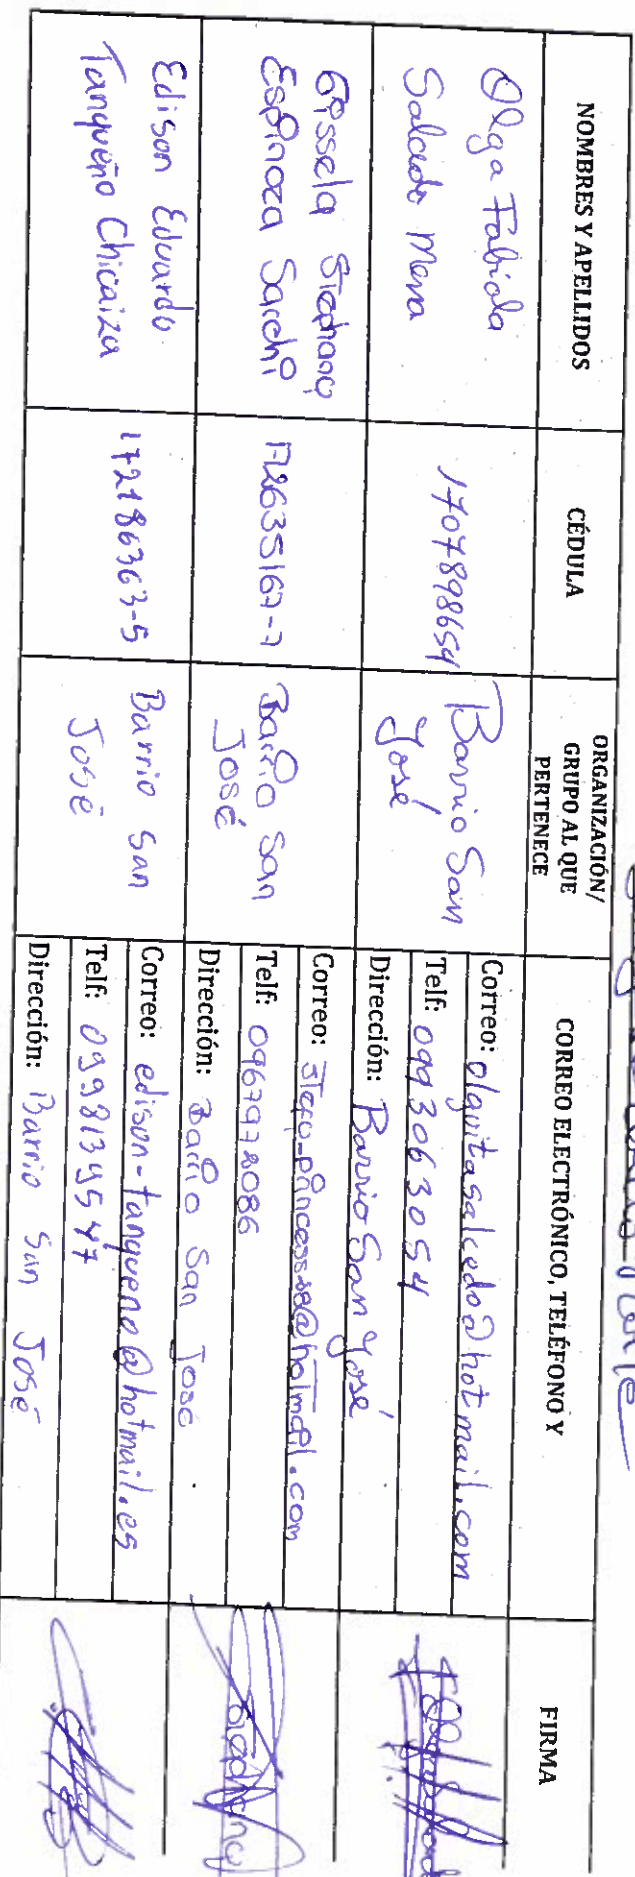 NOMBRES Y APELLIDOS
CÉDULA
ORGANIZACIÓN/
GRUPO AL QUE
PERTENECE
CORREO ELECTRÓNICO, TELÉFONO Y
FIRMA
Olga Fabiola
Salcedo Mena
1707898654
Barrio San
José
Correo: olguitasalcedo@hotmail.com
Telf: 0993063054
Dirección: Barrio San José
Gissela Stephany
Espinoza Sarchi
172635167-7
Barrio San
José
Correo: Stepo_princess18@hotmail.com
Telf: 0967978086
Dirección: Barrio San José
Edison Eduardo
Tanqueño Chicaiza
172186363-5
Barrio San
José
Correo: edison-tanqueno@hotmail.es
Telf: 0998139547
Dirección: Barrio San José